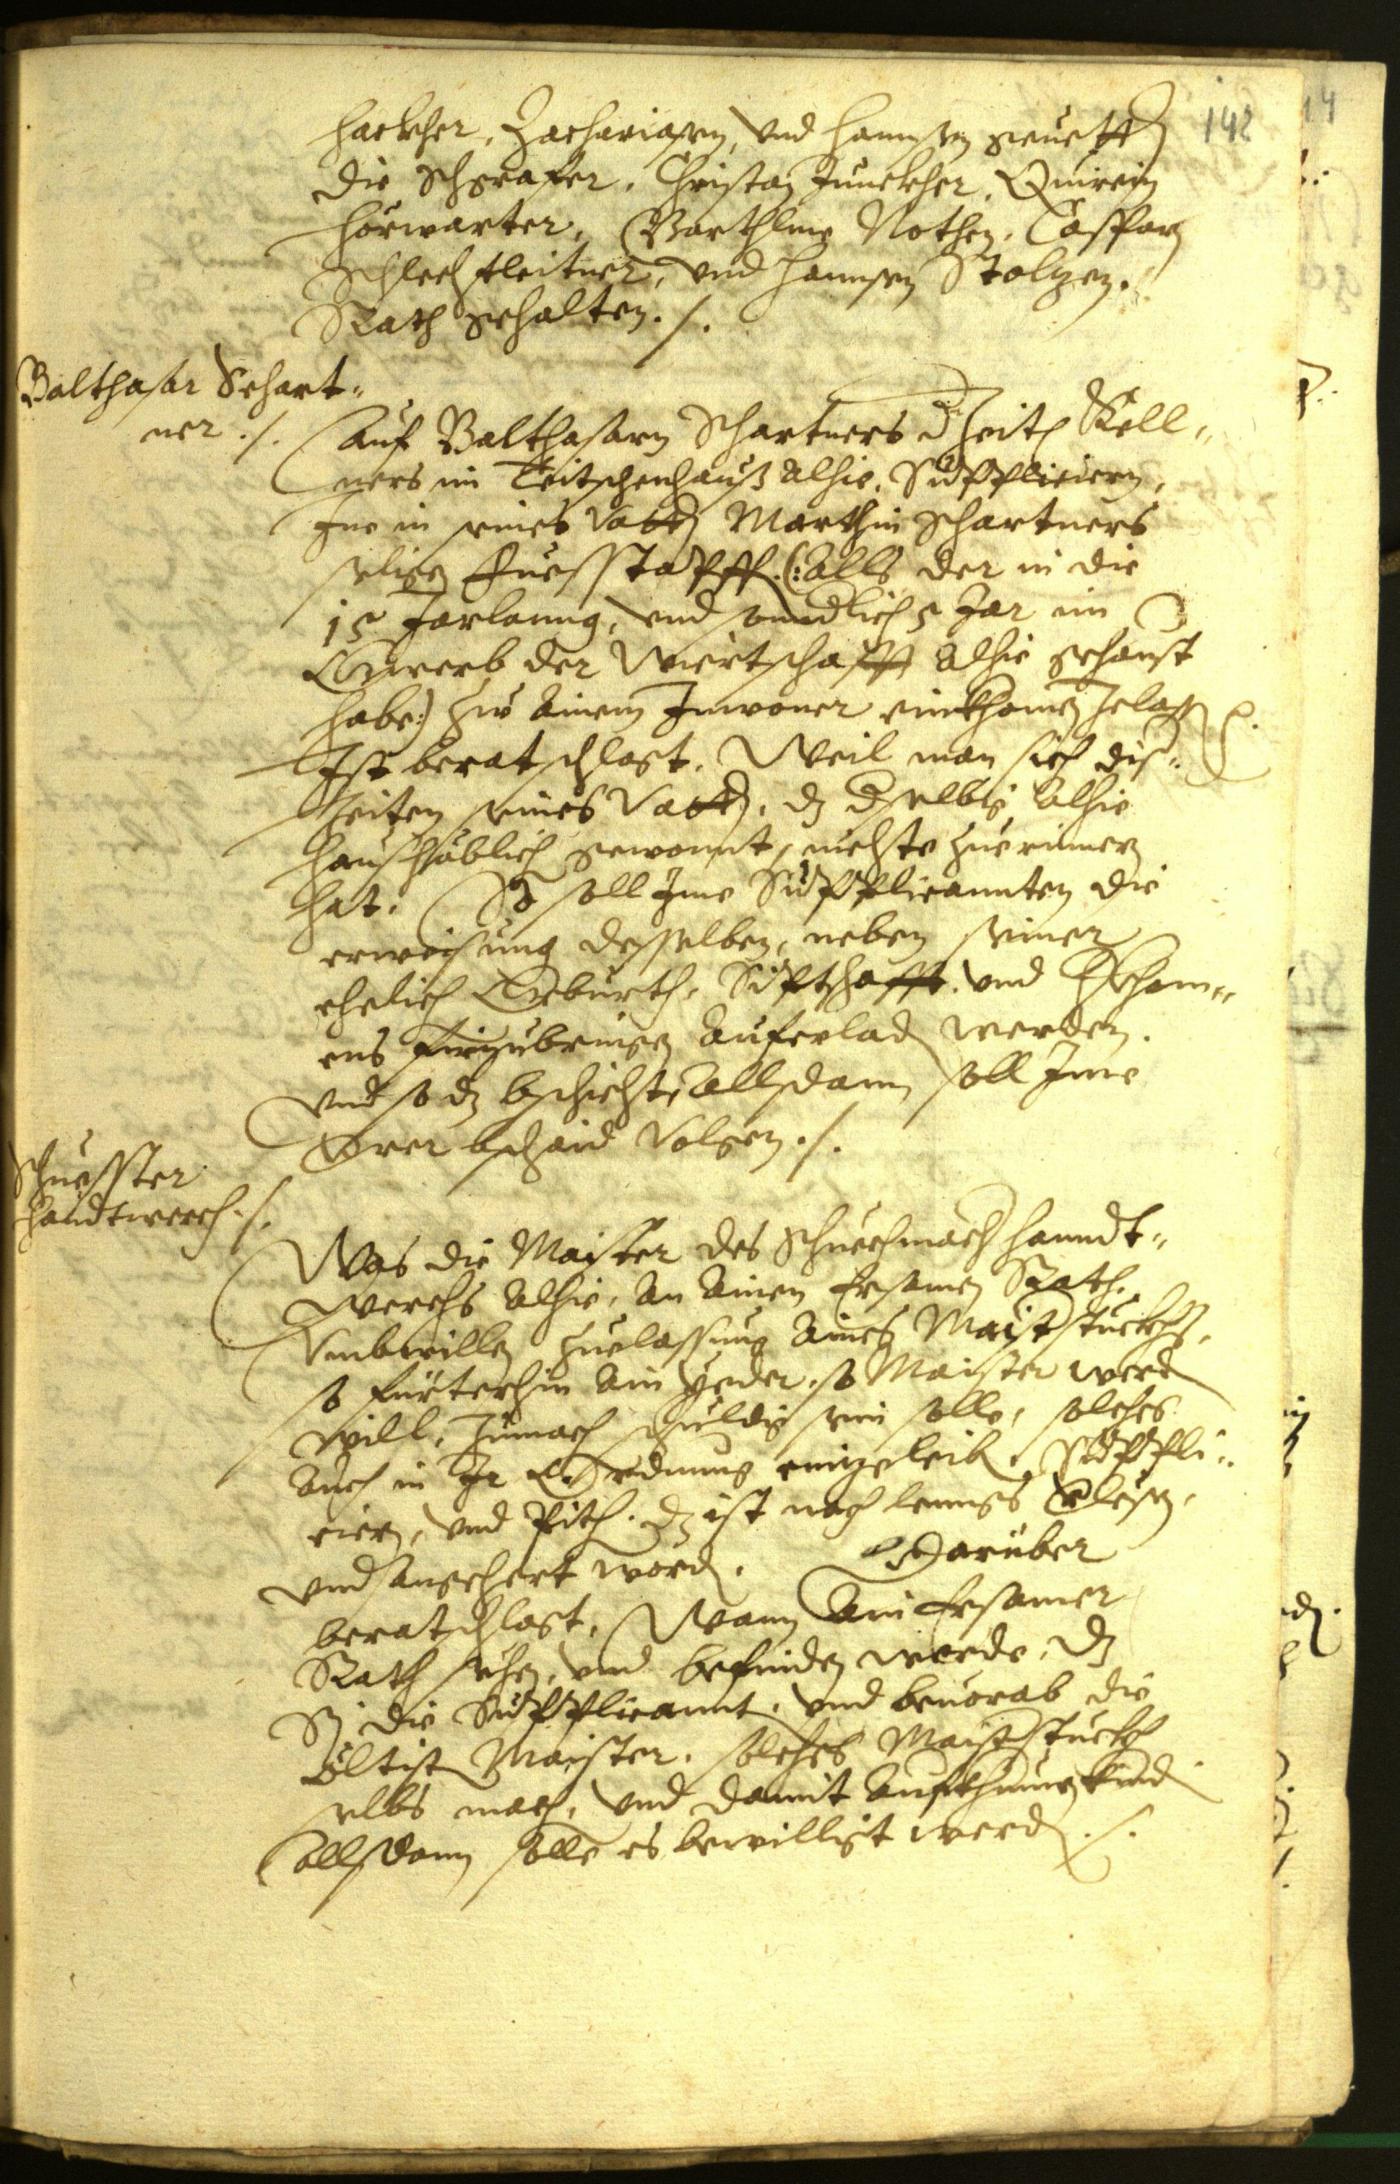 142
hackher, Zachariasen, und Hannsen gevett
die Schgrafer, Christan Junckher, Quirein
Hörwarter, Barthlme Nothen, Caspar
Schlechtleitner, und Hannsen Stolzen.
Rath gehalten ./.
Balthasar Schart-
ner ./.
Auf Balthasarn Schartners d Zeith Kell-
ners im Teitschenhauß alhie, Suppliciern,
Ine in seines Vatt Marthin Schartners
seligen Fuesstapff (: alls der in die
15 Jarlanng, und sonndlich 5 Jar im
Gwerb der Wiertschafft alhie gehaust
habe :) zu ainem Inwoner einkhomen zelassen
Ist beratschlagt, Weil man sich dis-
Zeiten seines Vatt, dz dselbig alhie
haushäblich gewonnt, nichts zuerinnern
hat. So soll Ime Supplicannten die
erweisung desselben, neben seiner
ehelich Geburth, Sipschafft, und Herkom-
ens fürzubringen auferlad werden.
Und so dz bschicht, Allsdann soll Ime
verer bschaid Volgen ./.
Schuesster
Handtwerch ./.
Was die Maister des Schuechmach Hanndt-
werchs alhie, an ainen Ersamen Rath,
Umbwillen zuelassung aines Maisterstuckhs,
so fürterhin ain yeder, so Maister werd
will, Zumach schuldig sein solle, solches
auch in Ir Ordnung einzuleib, Suppli-
ciern, und Pith. dz ist nach lenngs verlesen,
und angehert word. Darüber
beratschlagt, Wann ain Ersamer
Rath sehen, und befinden werde, dz
Sy die Supplicannt, und bevorab die
Eltist Maister, solches Maisterstuckh
selbs mach, und damit aufkhumen kind
allsdann solle es bewilligt werd ./.